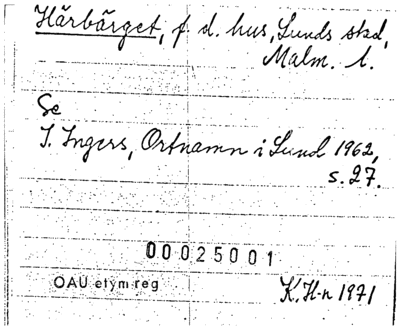 Härbärget, f. d. hus, Lunds stad,
Malm. l.
Se
I. Ingers, Ortnamn i Lund 1962,
s. 27.
00025001
OAU etym reg
K. H-n 1971